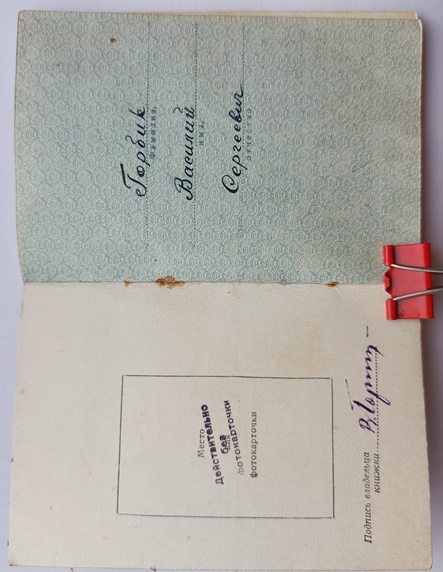 Место
Действительно
без
фотокарточки
фотокарточки
Подпись владельца
книжки
Горбик
фамилия,
Василий
имя,
Сергеевич
отчество